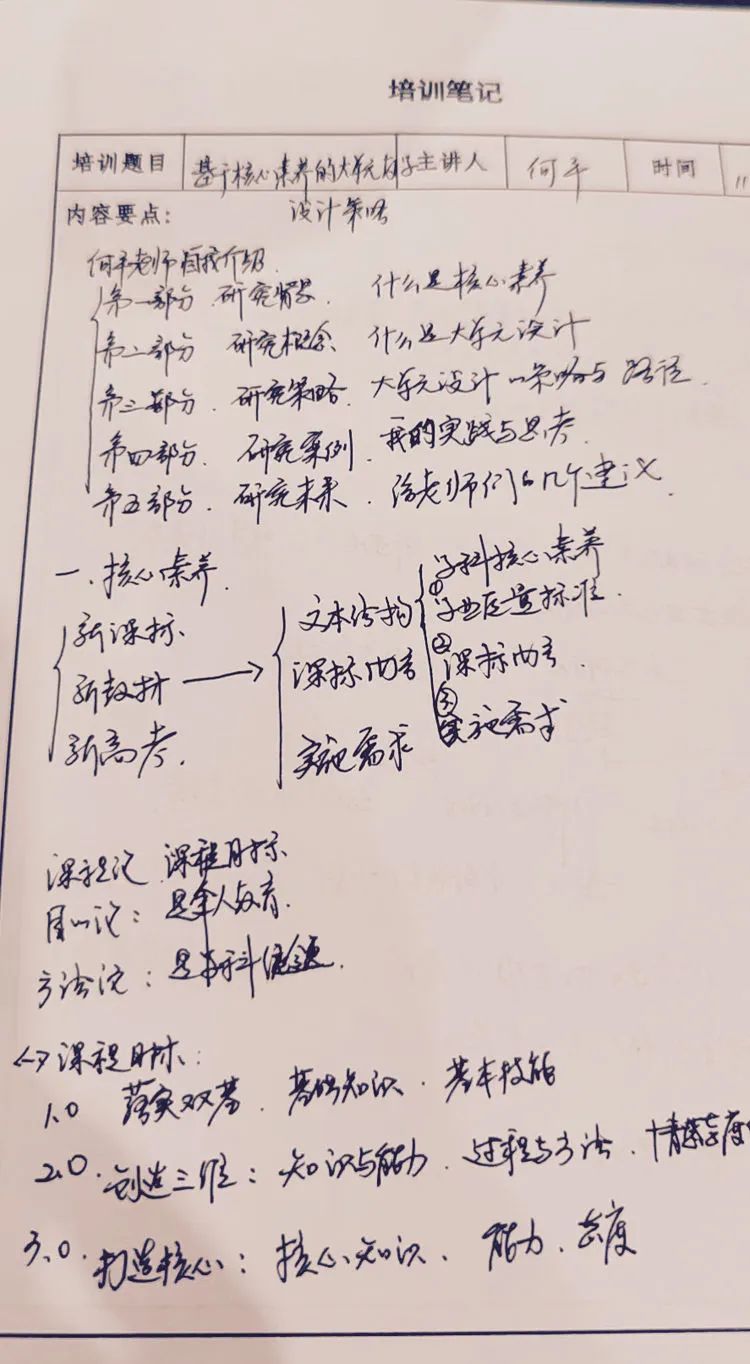 培训笔记
培训题目 基于核心素养的大单元教学 主讲人 何平 时间 11
设计策略
内容要点：
何平老师自我介绍.
第一部分 研究背景. 什么是核心素养
第二部分 研究概念. 什么是大单元设计
第三部分. 研究策略. 大单元设计的策略与路径.
第四部分. 研究案例. 我的实践与思考.
第五部分. 研究未来. 给老师们的几个建议.
一、核心素养.
新课标、
新教材
新高考.
文本结构
课标内容
实施需求
学科核心素养
①学业质量标准.
②课标内容.
③实施需求
课程论 课程目标
目的论：是全人教育.
方法论：是学科
(一)课程目标：
1.0 落实双基、基础知识、基本技能
2.0.创造三维：知识与能力、过程与方法、情感态度
3.0.打造核心：核心知识、能力、态度